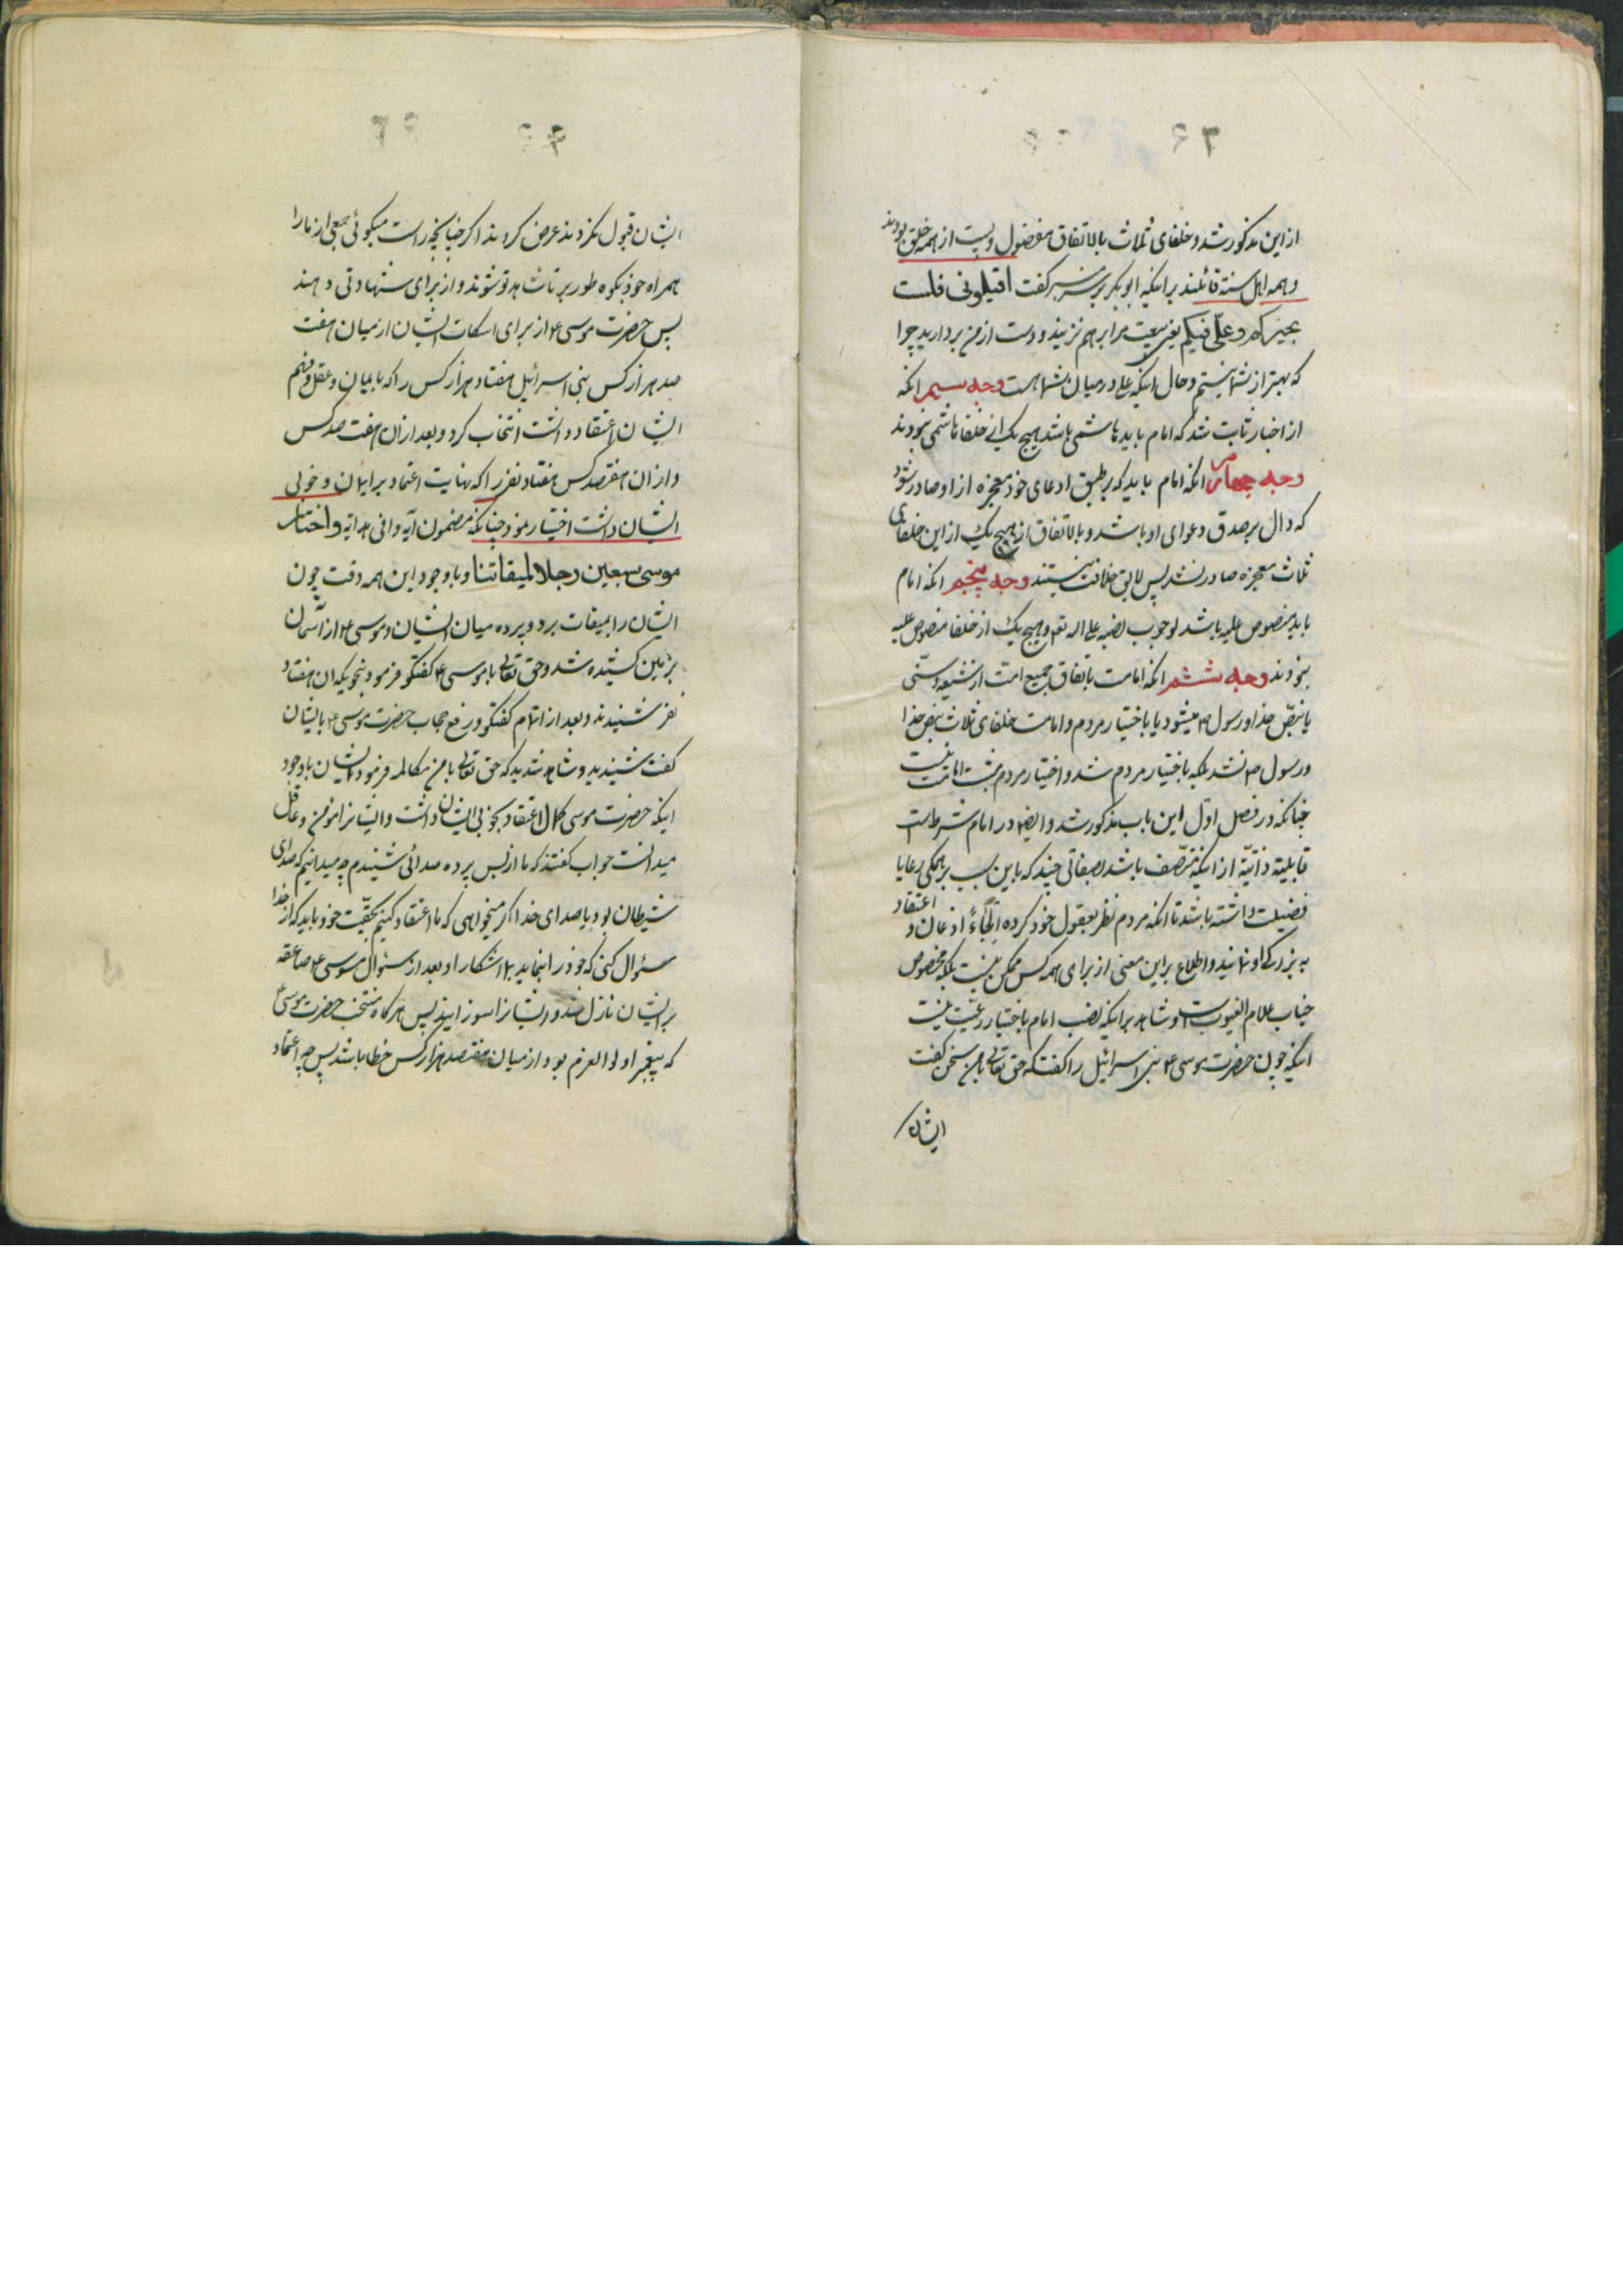 از این مذکور شد و خلفای ثلاث بالاتفاق مفضول و پست از همه خلق بودند
و همه اهل سنة قائلند بر اینکه ابو بکر بر سر منبر گفت اقیلونی فلست
بخیرکم و علیّ فیکم یعنی بیعت مرا برهم زنید و دست از من بردارید چرا
که بهتر از شما نیستم و حال اینکه علی در میان شما است وجه سیم انکه
از اخبار ثابت شد که امام باید هاشمی باشد و هیچ یک از خلفا هاشمی نبودند
وجه چهارم انکه امام باید که بر طبق ادعای خود معجزه از او صادر شود
که دال بر صدق دعوای او باشد و بالاتفاق از هیچ یک از این خلفای
ثلاث معجزه صادر نشد پس لایق خلافت نیستند وجه پنجم انکه امام
باید منصوص علیه باشد لوجوب نصبه علی اله تعم و هیچ یک از خلفا منصوص علیه
نبودند وجه ششم انکه امامت باتفاق جمیع امّت از شیعه و سنّی
یا بنصّ خدا و رسول ص میشود یا باختیار مردم و امامت خلفای ثلاث بنص خدا
و رسول ص نشد بلکه باختیار مردم شد و اختیار مردم مثبت امامت نیست
چنانکه در فصل اوّل این باب مذکور شد و ایضا در امام شرط است
قابلیّة ذاتیّة از اینکه متّصف باشد بصفاتی چند که باین سبب بر همکی رعایا
فضیلت داشته باشد تا انکه مردم نظر بعقول خود کرده اِلجاءً اذعان و اعتقاد
به بزرکی او نمایند و اطلاع بر این معنی از برای همه کس ممکن نیست بلکه مخصوص
جناب علام الغیوب است و شاهد بر اینکه نصب امام باختیار رعیّت نیست
اینکه چون حضرت موسی ع بنی اسرائیل را گفت که حق تعالی با من سخن گفت
ایشان
ایشان قبول نکردند عرض کردند اکر چنانچه راست میکوئی جمعی از ما را
همراه خود بکوه طور بر تا شاهد تو شوند و از برای شهادتی دهند
پس حضرت موسی ع از برای اسکات ایشان از میان هفت
صد هزار کس بنی اسرائیل هفتاد هزار کس را که بایمان و عقل و فهم
ایشان اعتقاد داشت انتخاب کرد و بعد از ان هفت صد کس
و از ان هفتصد کس هفتاد نفر را که نهایت اعتماد بر ایمان و خوبی
ایشان داشت اختیار نمود چنانکه مضمون آیه وافی هدایه واختار
موسی سبعین رجلا لمیقاتنا و با وجود این همه دقت چون
ایشان را بمیقات برد و پرده میان ایشان و موسی ع از آسمان
بزمین کشیده شد و حق تعالی با موسی ع گفتگو فرمود بنحویکه ان هفتاد
نفر شنیدند و بعد از اتمام گفتگو و رفع حجاب حضرت موسی ع بایشان
گفت شنیدید و شاهد شدید که حق تعالی با من مکالمه فرمود ایشان با وجود
اینکه حضرت موسی کمال اعتقاد بخوبی ایشان داشت و ایشانرا مؤمن و عاقل
میدانست جواب گفتند که ما از پس پرده صدائی شنیدم چه میدانیم که صدای
شیطان بود یا صدای خدا اکر میخواهی که ما اعتقاد کنیم بحقّیت خود باید که از خدا
سئوال کنی که خود را بنماید بما اشکارا و بعد از سئوال موسی ع صاعقه
بر ایشان نازل شد و ایشانرا سوزانید پس هرکاه منتخب حضرت موسی ع
که پیغمبر اولو العزم بود از میان هفتصد هزار کس خطا باشد پس چه اعتماد